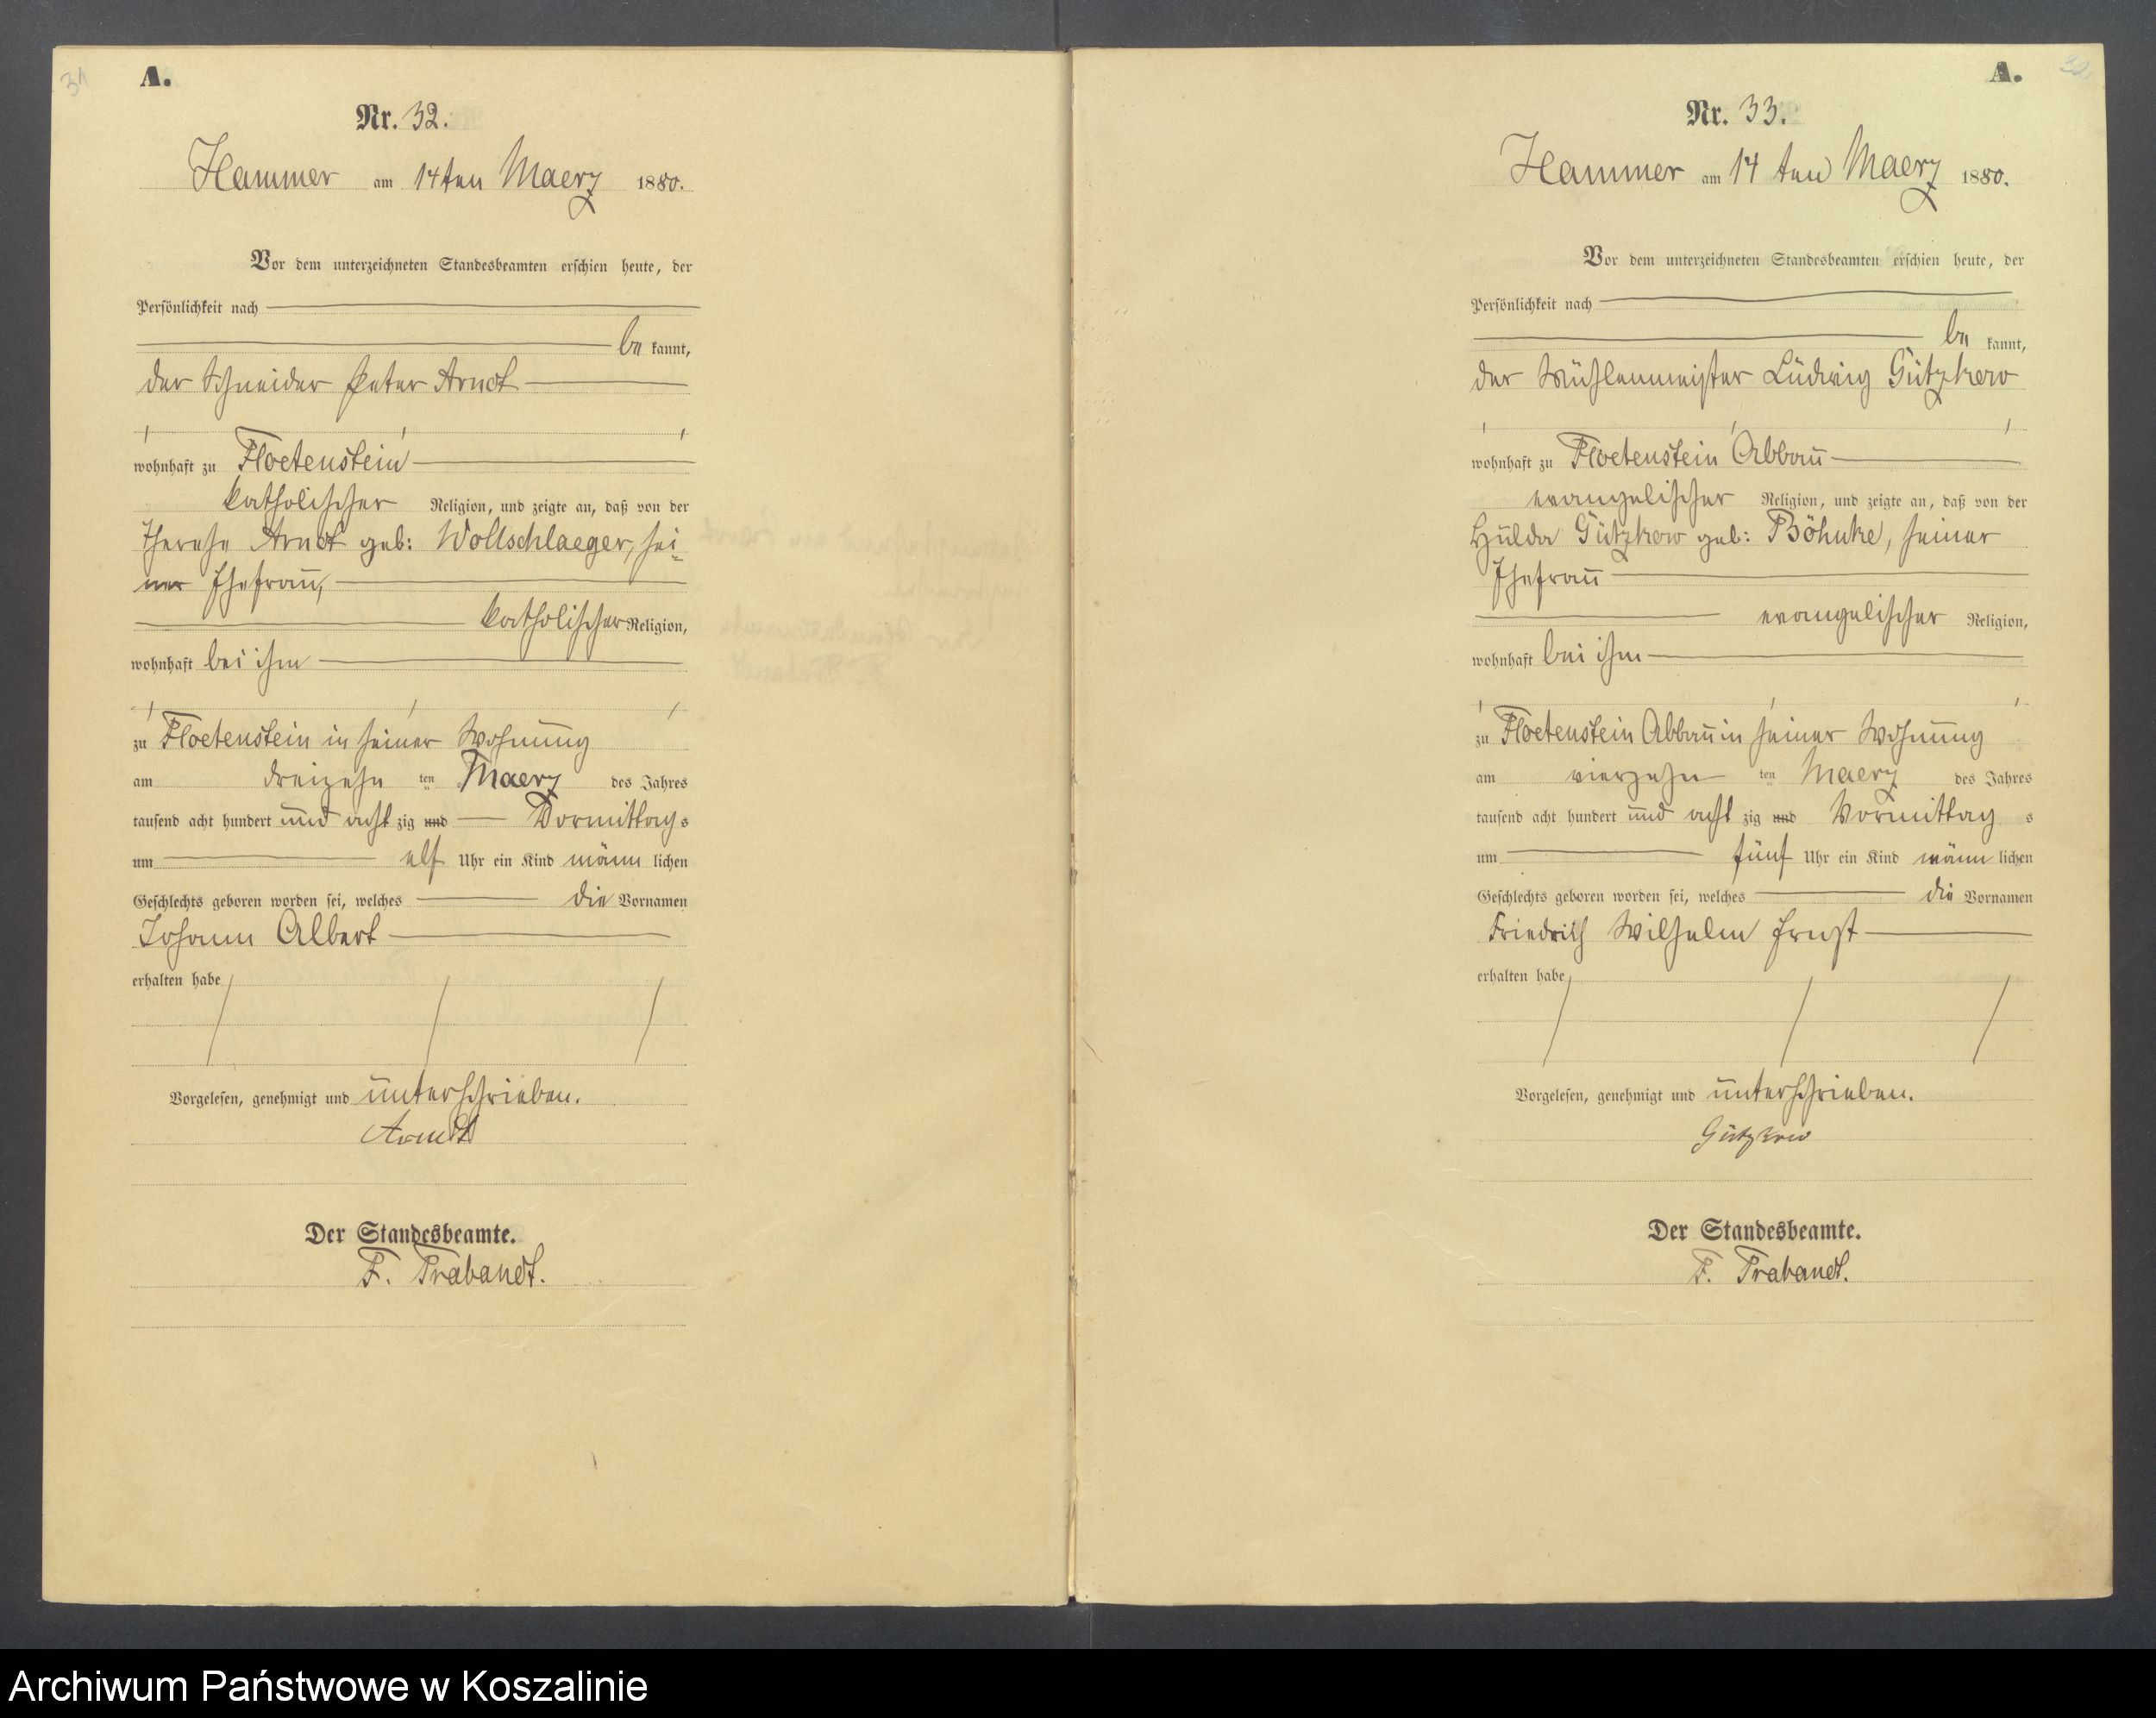 31
A.
Nr. 32.
Hammer am 14ten Maerz 1880.
Vor dem unterzeichneten Standesbeamten erschien heute, der
Persönlichkeit nach
be kannt,
der Schneider Peter Arndt
wohnhaft zu Floetenstein
katholischer Religion, und zeigte an, daß von der
Therese Arndt geb: Wollschlaeger, sei-
ner Ehefrau,
katholischer Religion,
wohnhaft bei ihm
zu Floetenstein in seiner Wohnung
am dreizehn ten Maerz des Jahres
tausend acht hundert und acht zig und Vormittags
um elf Uhr ein Kind männ lichen
Geschlechts geboren worden sei, welches die Vornamen
Johann Albert
erhalten habe
Vorgelesen, genehmigt und unterschrieben.
Arndt
Der Standesbeamte.
F. Trabandt.
32
A.
Nr. 33.
Hammer am 14 ten Maerz 1880.
Vor dem unterzeichneten Standesbeamten erschien heute, der
Persönlichkeit nach
be kannt,
der Mühlenmeister Ludwig Gützkow
wohnhaft zu Floetenstein Abbau
evangelischer Religion, und zeigte an, daß von der
Hulda Gützkow geb: Böhnke, seiner
Ehefrau
evangelischer Religion,
wohnhaft bei ihm
zu Floetenstein Abbau in seiner Wohnung
am vierzehn ten Maerz des Jahres
tausend acht hundert und acht zig und Vormittag s
um fünf Uhr ein Kind männ lichen
Geschlechts geboren worden sei, welches die Vornamen
Friedrich Wilhelm Ernst
erhalten habe
Vorgelesen, genehmigt und unterschrieben.
Gützkow
Der Standesbeamte.
F. Trabandt.
Archiwum Państwowe w Koszalinie